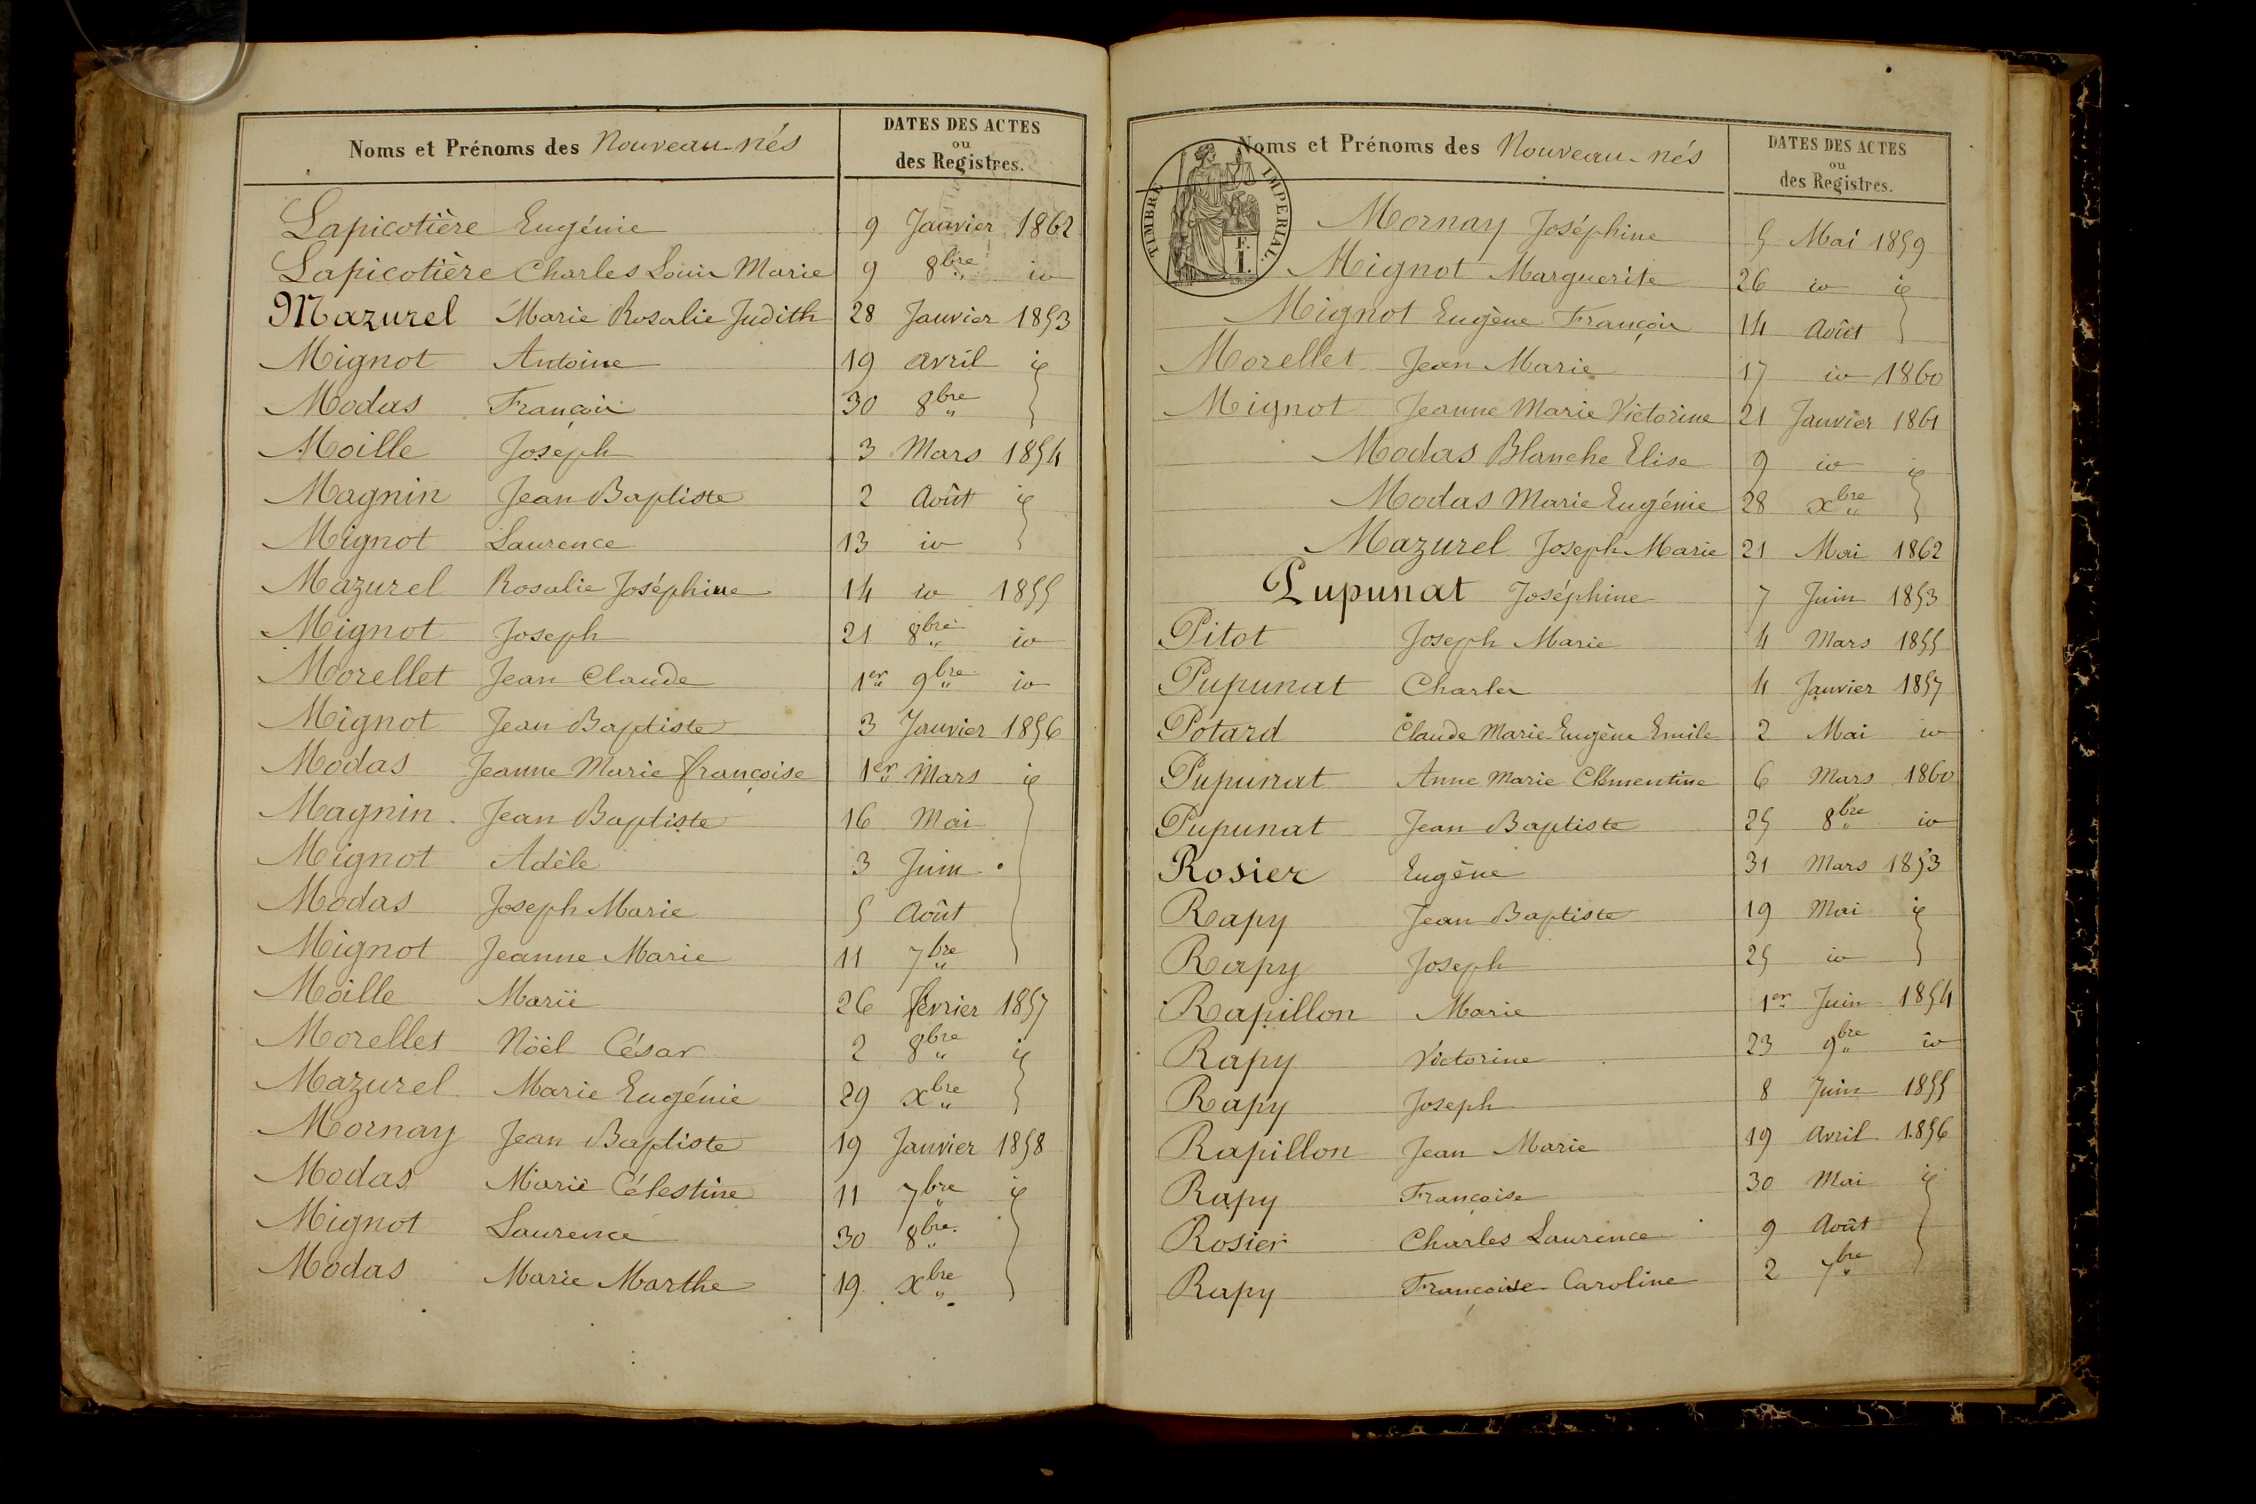 Noms et Prénoms des Nouveau-nés DATES DES ACTES
ou
des Registres.
Lapicotière Eugénie 9 Janvier 1862
Lapicotière Charles Louis Marie 9 8bre io
Mazurel Marie Rosalie Judith 28 Janvier 1853
Mignot Antoine 19 avril id
Modas François 30 8bre
Moille Joseph 3 Mars 1854
Magnin Jean Baptiste 2 Août id
Mignot Laurence 13 io
Mazurel Rosalie Joséphine 14 io 1855
Mignot Joseph 21 8bre io
Morellet Jean Claude 1er 9bre io
Mignot Jean Baptiste 3 Janvier 1856
Modas Jeanne Marie françoise 1er Mars id
Magnin Jean Baptiste 16 Mai
Mignot Adèle 3 Juin
Modas Joseph Marie 5 Août
Mignot Jeanne Marie 11 7bre
Moille Marie 26 février 1857
Morellet Nöël César 2 8bre id
Mazurel Marie Eugénie 29 xbre
Mornay Jean Baptiste 19 Janvier 1858
Modas Marie Célestine 11 7bre id
Mignot Laurence 30 8bre
Modas Marie Marthe 19 xbre
Noms et Prénoms des Nouveau-nés DATES DES ACTES
ou
des Registres.
TIMBRE IMPERIAL.
F.
I.
Mornay Joséphine 5 Mai 1859
Mignot Marguerite 26 io id
Mignot Eugène François 14 Août
Morellet Jean Marie 17 io 1860
Mignot Jeanne Marie Victorine 21 Janvier 1861
Modas Blanche Elise 9 io id
Modas Marie Eugénie 28 xbre
Mazurel Joseph Marie 21 Mai 1862
Pupunat Joséphine 7 Juin 1853
Pitot Joseph Marie 4 Mars 1855
Pupunat Charles 4 Janvier 1857
Potard Claude Marie Eugène Emile 2 Mai io
Pupunat Anne Marie Clémentine 6 Mars 1860
Pupunat Jean Baptiste 25 8bre io
Rosier Eugène 31 Mars 1853
Rapy Jean Baptiste 19 Mai id
Rapy Joseph 25 io
Rapillon Marie 1er Juin 1854
Rapy Victorine 23 9bre io
Rapy Joseph 8 Juin 1855
Rapillon Jean Marie 19 Avril 1856
Rapy Françoise 30 Mai id
Rosier Charles Laurence 9 Août
Rapy Françoise Caroline 2 7bre